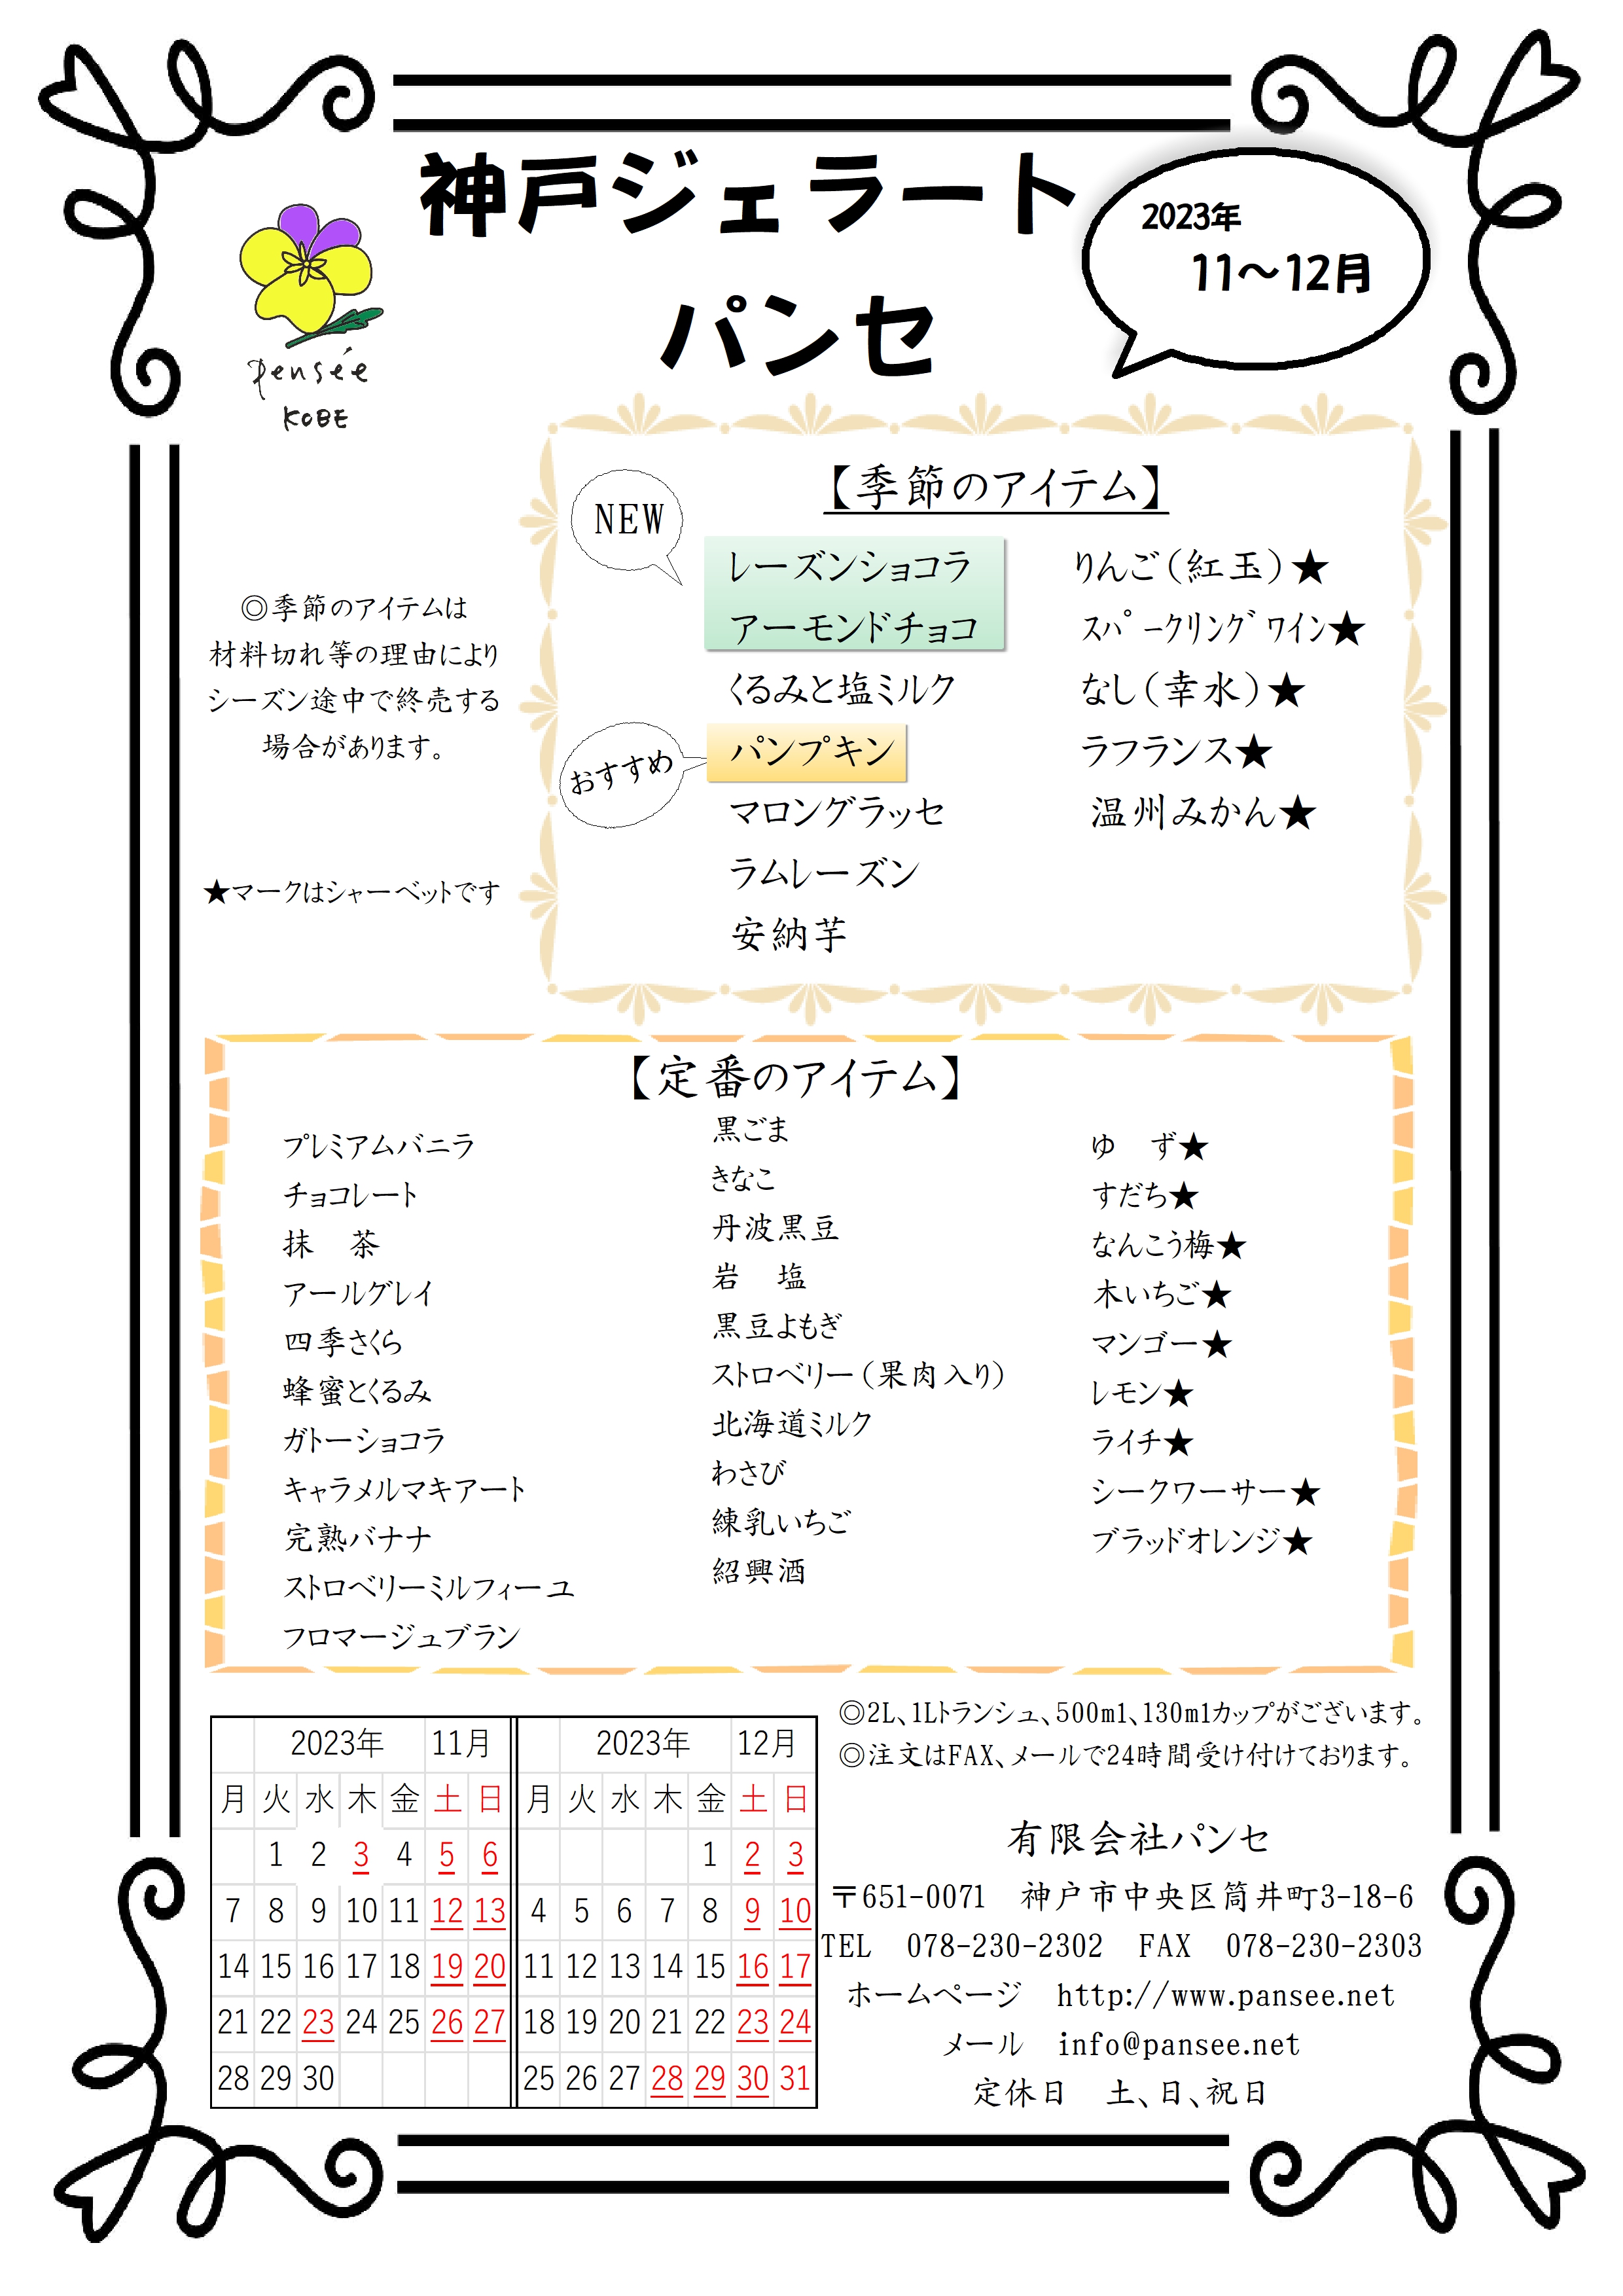 神戸ジェラート
パンセ
2023年
11～12月
pensée
KOBE
【季節のアイテム】
NEW
レーズンショコラ
アーモンドチョコ
くるみと塩ミルク
おすすめ
パンプキン
マロングラッセ
ラムレーズン
安納芋
りんご（紅玉）★
ｽﾊﾟｰｸﾘﾝｸﾞﾜｲﾝ★
なし（幸水）★
ラフランス★
温州みかん★
◎季節のアイテムは
材料切れ等の理由により
シーズン途中で終売する
場合があります。
★マークはシャーベットです
【定番のアイテム】
プレミアムバニラ
チョコレート
抹　茶
アールグレイ
四季さくら
蜂蜜とくるみ
ガトーショコラ
キャラメルマキアート
完熟バナナ
ストロベリーミルフィーユ
フロマージュブラン
黒ごま
きなこ
丹波黒豆
岩　塩
黒豆よもぎ
ストロベリー（果肉入り）
北海道ミルク
わさび
練乳いちご
紹興酒
ゆ　ず★
すだち★
なんこう梅★
木いちご★
マンゴー★
レモン★
ライチ★
シークワーサー★
ブラッドオレンジ★
2023年 11月
月 火 水 木 金 土 日
1 2 3 4 5 6
7 8 9 10 11 12 13
14 15 16 17 18 19 20
21 22 23 24 25 26 27
28 29 30
2023年 12月
月 火 水 木 金 土 日
1 2 3
4 5 6 7 8 9 10
11 12 13 14 15 16 17
18 19 20 21 22 23 24
25 26 27 28 29 30 31
◎2L、1Lトランシュ、500ml、130mlカップがございます。
◎注文はFAX、メールで24時間受け付けております。
有限会社パンセ
〒651-0071　神戸市中央区筒井町3-18-6
TEL　078-230-2302　FAX　078-230-2303
ホームページ　http://www.pansee.net
メール　info@pansee.net
定休日　土、日、祝日